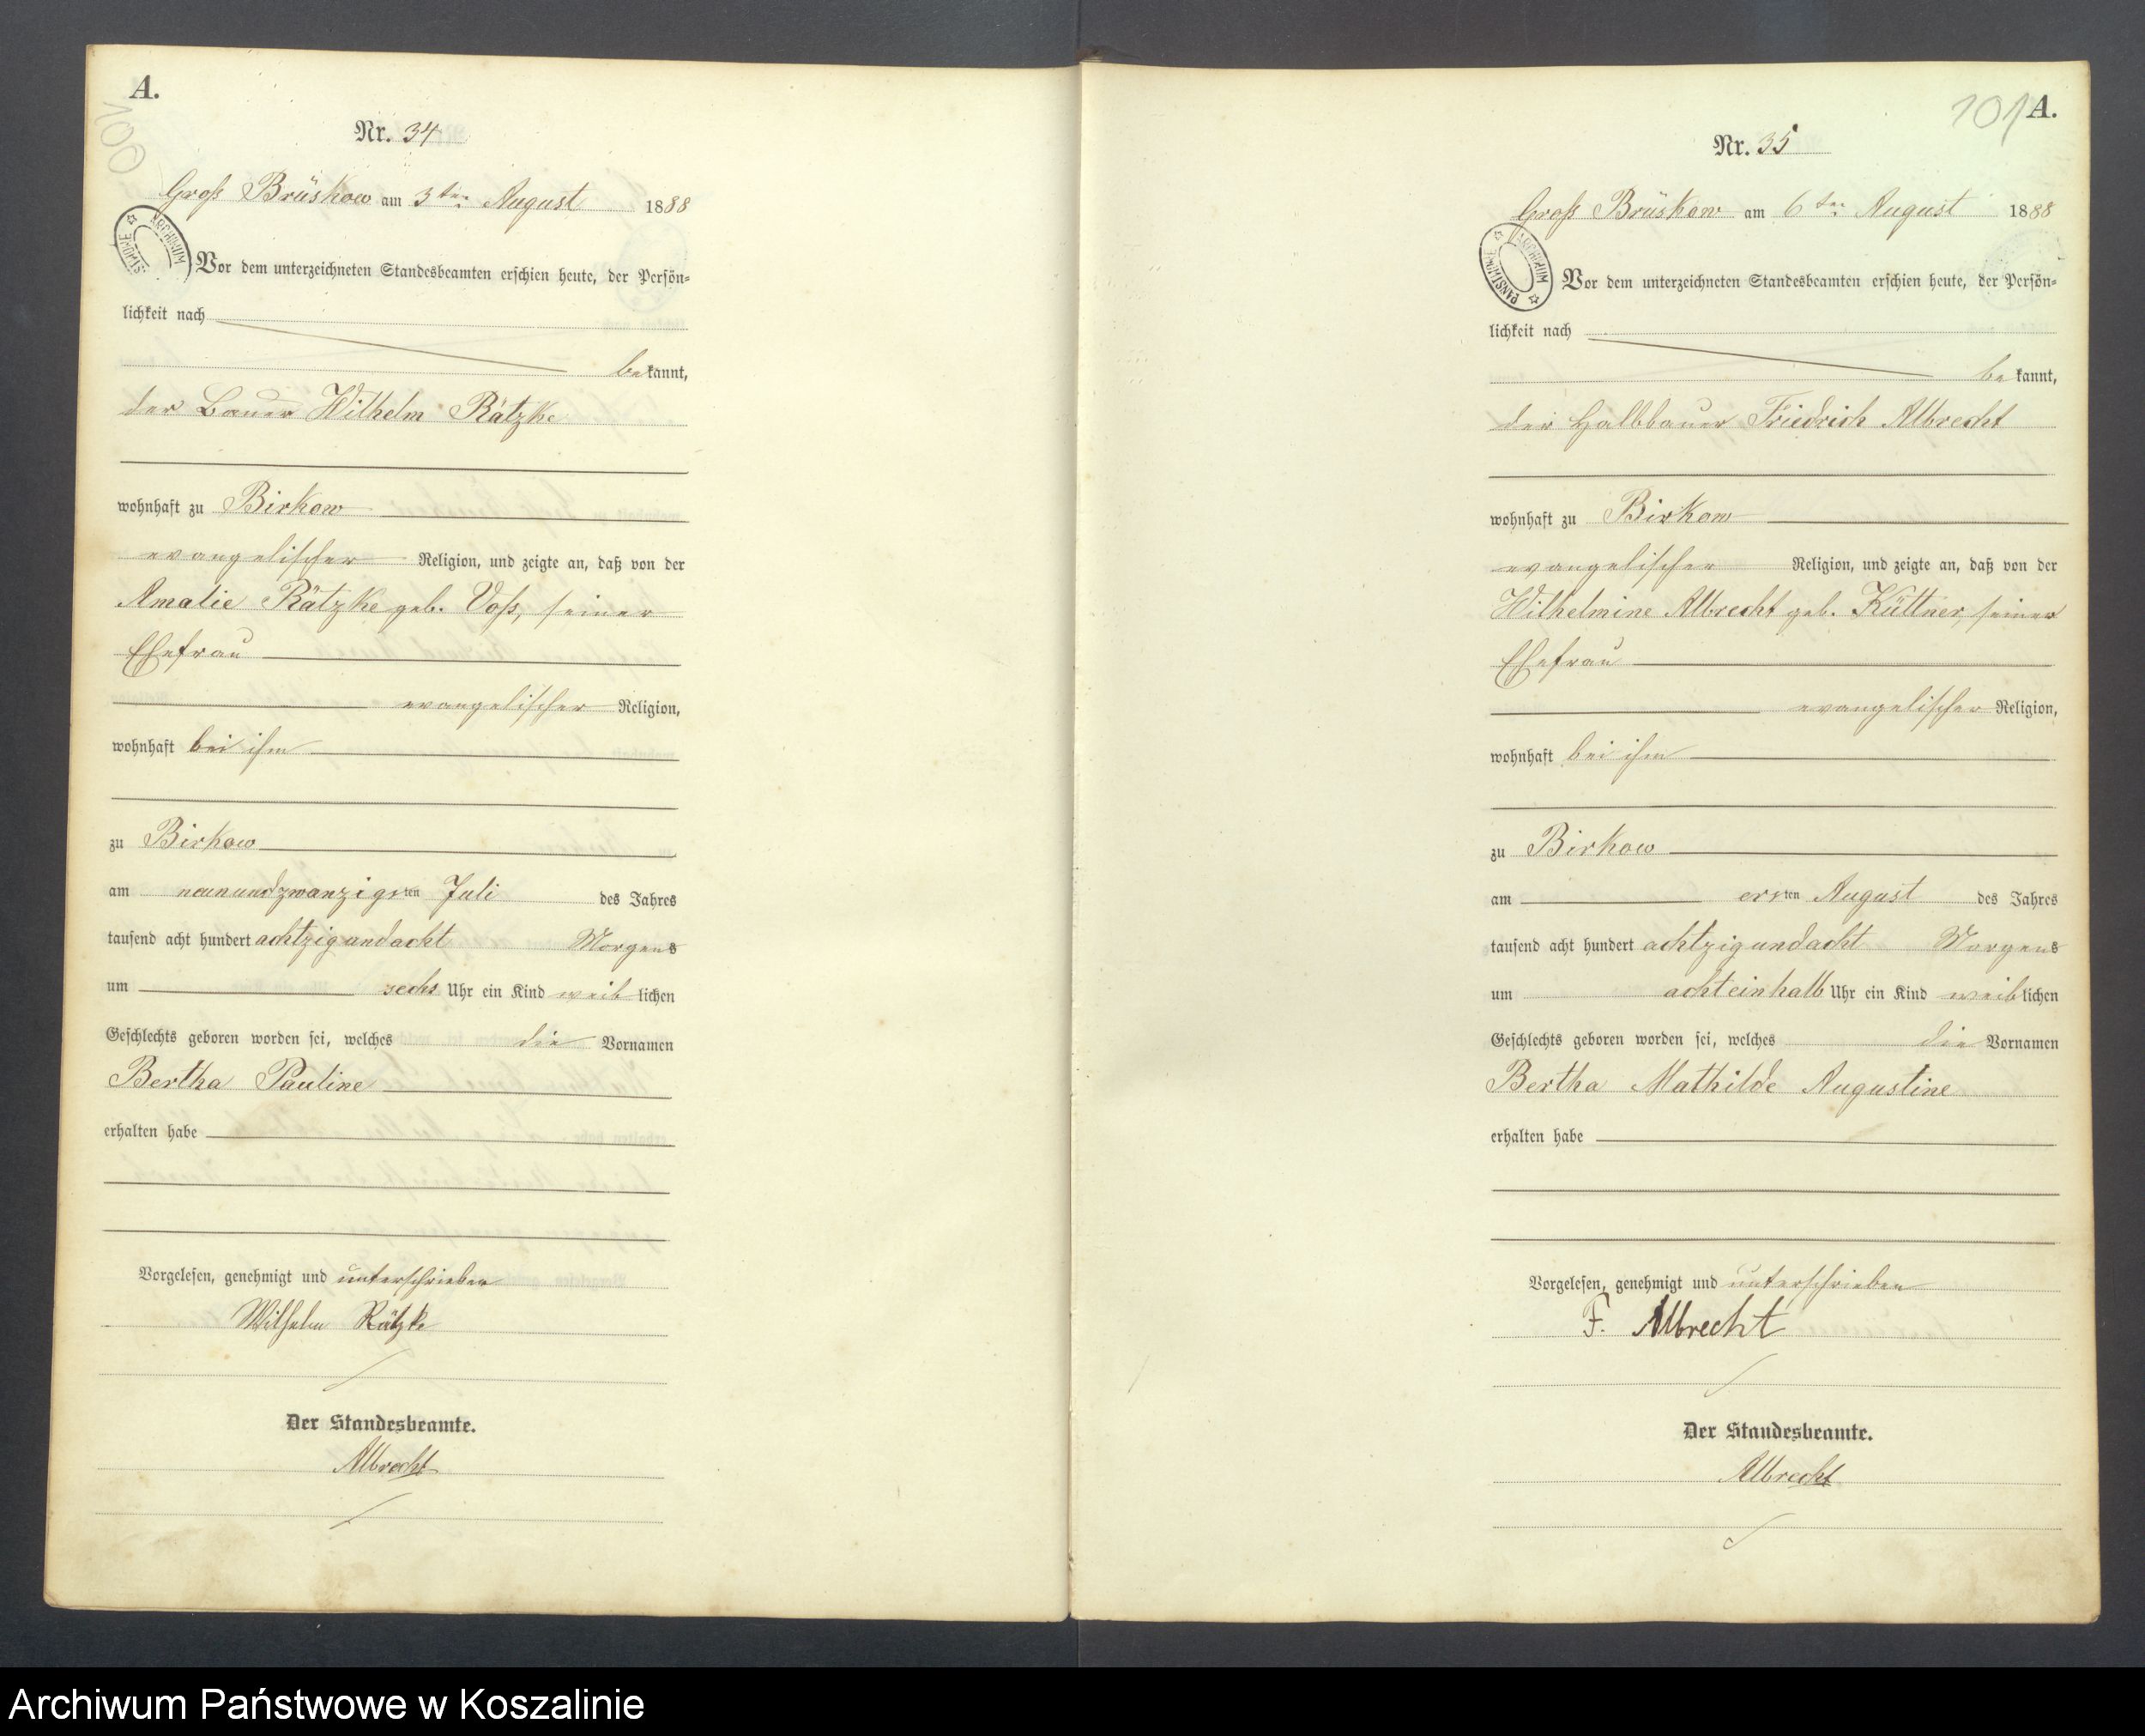 A.
100
Nr. 34
Groß Brüskow am 3ten August 1888
ARCHIWUM
Vor dem unterzeichneten Standesbeamten erschien heute, der Persön-
lichkeit nach
bekannt,
der Bauer Wilhelm Rätzke
wohnhaft zu Birkow
evangelischer Religion, und zeigte an, daß von der
Amalie Rätzke geb. Voß, seiner
Ehefrau
evangelischer Religion,
wohnhaft bei ihm
zu Birkow
am neunundzwanzigsten Juli des Jahres
tausend acht hundert achtzigundacht Morgens
um sechs Uhr ein Kind weiblichen
Geschlechts geboren worden sei, welches die Vornamen
Bertha Pauline
erhalten habe
Vorgelesen, genehmigt und unterschrieben
Wilhelm Rätzke
Der Standesbeamte.
Albrecht
101 A.
Nr. 35
Groß Brüskow am 6ten August 1888
ARCHIWUM
Vor dem unterzeichneten Standesbeamten erschien heute, der Persön-
lichkeit nach
bekannt,
der Halbbauer Friedrich Albrecht
wohnhaft zu Birkow
evangelischer Religion, und zeigte an, daß von der
Wilhelmine Albrecht geb. Küttner, seiner
Ehefrau
evangelischer Religion,
wohnhaft bei ihm
zu Birkow
am ersten August des Jahres
tausend acht hundert achtzigundacht Morgens
um achteinhalb Uhr ein Kind weiblichen
Geschlechts geboren worden sei, welches die Vornamen
Bertha Mathilde Augustine
erhalten habe
Vorgelesen, genehmigt und unterschrieben
F. Albrecht
Der Standesbeamte.
Albrecht
Archiwum Państwowe w Koszalinie